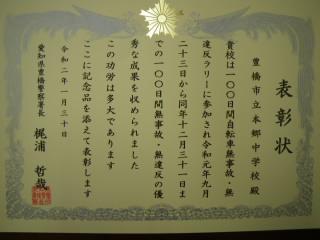 表彰状
豊橋市立本郷中学校殿
貴校は一〇〇日間自転車無事故・無
違反ラリーに参加され令和元年九月
二十三日から同年十二月三十一日ま
での一〇〇日間無事故・無違反の優
秀な成果を収められました
この功労は多大であります
ここに記念品を添えて表彰します
令和二年一月三十日
愛知県豊橋警察署長 梶浦哲哉